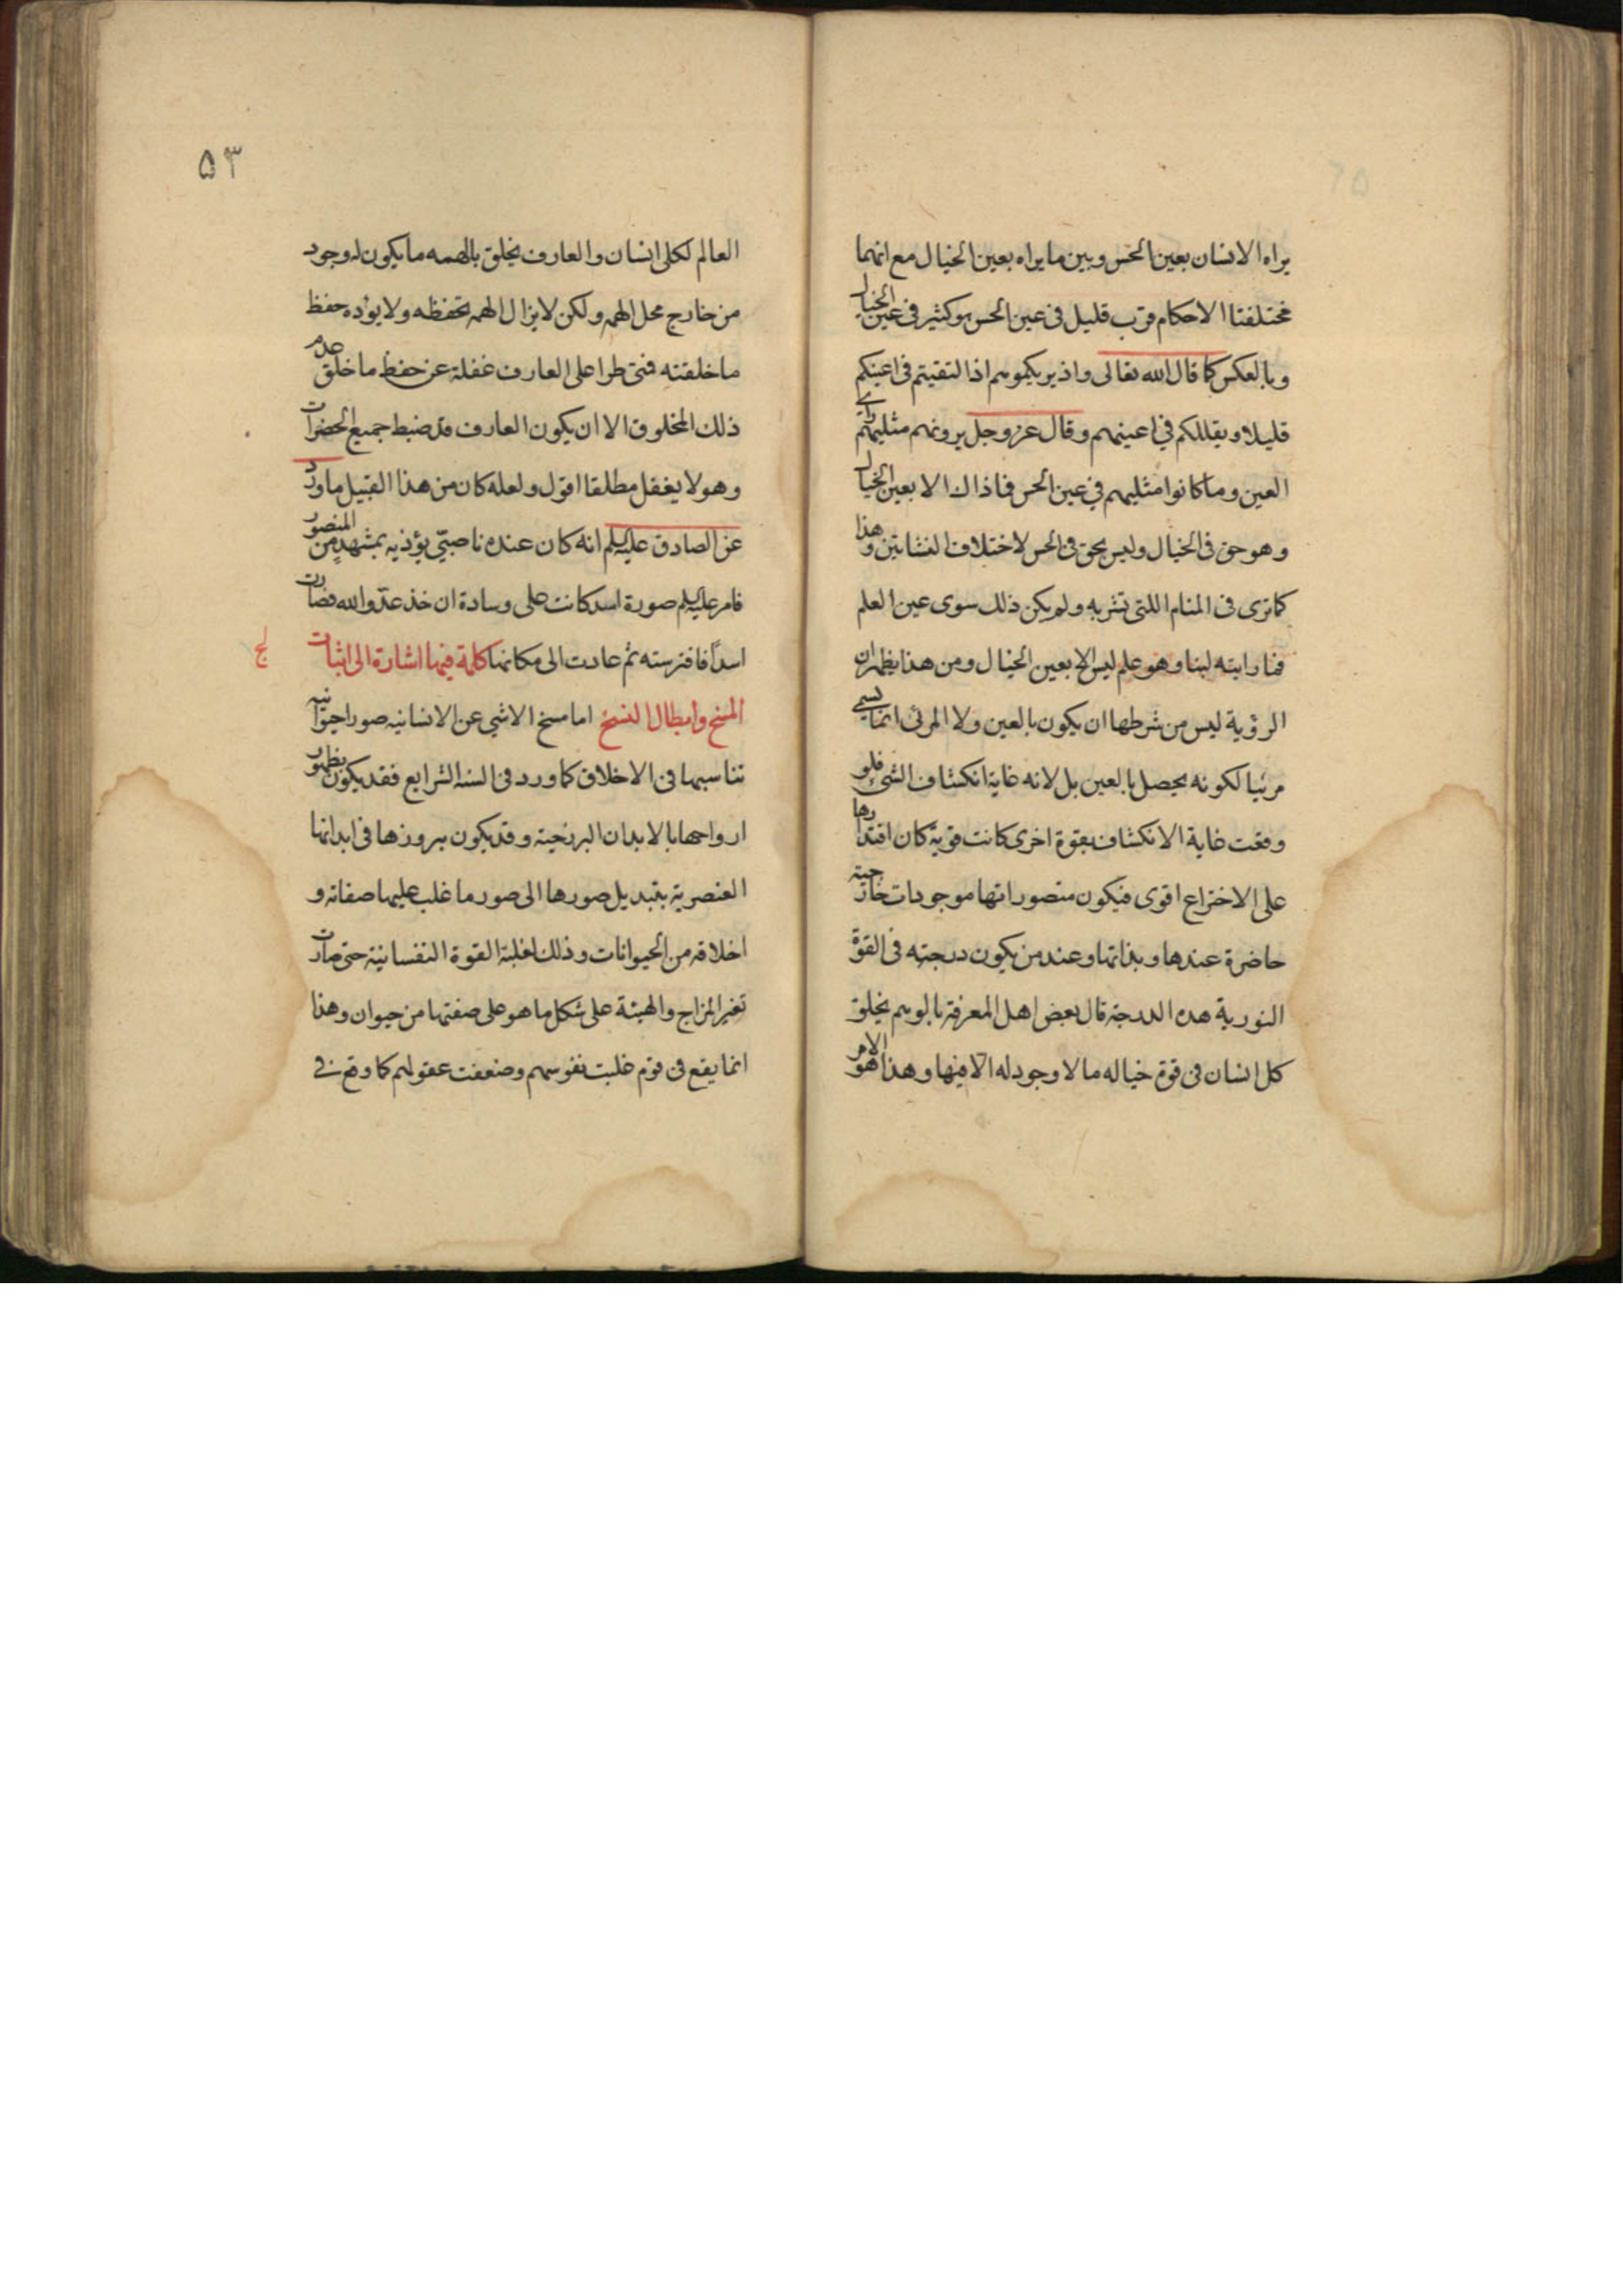 يراه الانسان بعين الحس وبين ما يراه بعين الخيال مع انهما
مختلفتا الاحكام فرب قليل في عين الحس هو كثير في عين الخيال
وبالعكس كما قال الله تعالى واذ يريكموهم اذ التقيتم في اعينكم
قليلا ويقللكم في اعينهم وقال عز وجل يرونهم مثليهم راي
العين وما كانوا مثليهم في عين الحس فما ذاك الا بعين الخيال
وهو حق في الخيال وليس بحق في الحس لاختلاف النشاتين وهذا
كما ترى في المنام اللبن تشربه ولم يكن ذلك سوى عين العلم
فما رايته لبنا وهو علم ليس الا بعين الخيال ومن هذا يظهر ان
الرؤية ليس من شرطها ان يكون بالعين ولا المرئى انما يسمى
مرئيا لكونه يحصل بالعين بل لانه غاية انكشاف الشئ فلو
وقعت غاية الانكشاف بقوة اخرى كانت قوية كان اقتدارها
على الاختراع اقوى فيكون متصوراتها موجودات خارجية
حاضرة عندها وبذاتها وعند من يكون درجته في القوة
النورية هذه الدرجة قال بعض اهل المعرفة بالوهم يخلق
كل انسان في قوة خياله ما لا وجود له الا فيها وهذا هو الامر
۵۳
العالم لكل انسان والعارف يخلق بالهمه ما يكون له وجود
من خارج محل الهمه ولكن لا يزال الهمه تحفظه ولا يؤده حفظ
ما خلقته فمتى طرا على العارف غفلة عن حفظ ما خلق عدم
ذلك المخلوق الا ان يكون العارف قد ضبط جميع الحضرات
وهو لا يغفل مطلقا اقول ولعله كان من هذا القبيل ما ورد
عن الصادق عليه السلم انه كان عنده ناصبي يؤذيه بمشهد من المنصور
فامر عليه السلم صورة اسد كانت على وسادة ان خذ عدو الله فصارت
اسدا فافترسته ثم عادت الى مكانها كلمة فيها اشارة الى اثبات
لج
المسخ وابطال النسخ اما مسخ الاشي عن الانسانيه صورا حيوانيه
تناسبها في الاخلاق كما ورد في السنه الشرايع فقد يكون بظهور
ارواحها بالابدان البرزخية وقد يكون ببروزها في ابدانها
العنصرية بتبديل صورها الى صور ما غلب عليها صفاته و
اخلاقه من الحيوانات وذلك لغلبة القوة النفسانية حتى صارت
تغير المزاج والهيئة على شكل ما هو على صفتها من حيوان وهذا
انما يقع في قوم غلبت نفوسهم وضعفت عقولهم كما وقع في